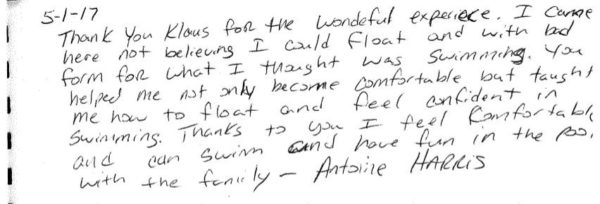 5-1-17
Thank you Klaus for the wondeful experiece. I came
here not believing I could float and with bad
form for what I thought was swimming. You
helped me not only become comfortable but taught
me how to float and feel confident in
swimming. Thanks to you I feel comfortable
and can swim and have fun in the poo
with the family - Antoine HARRIS